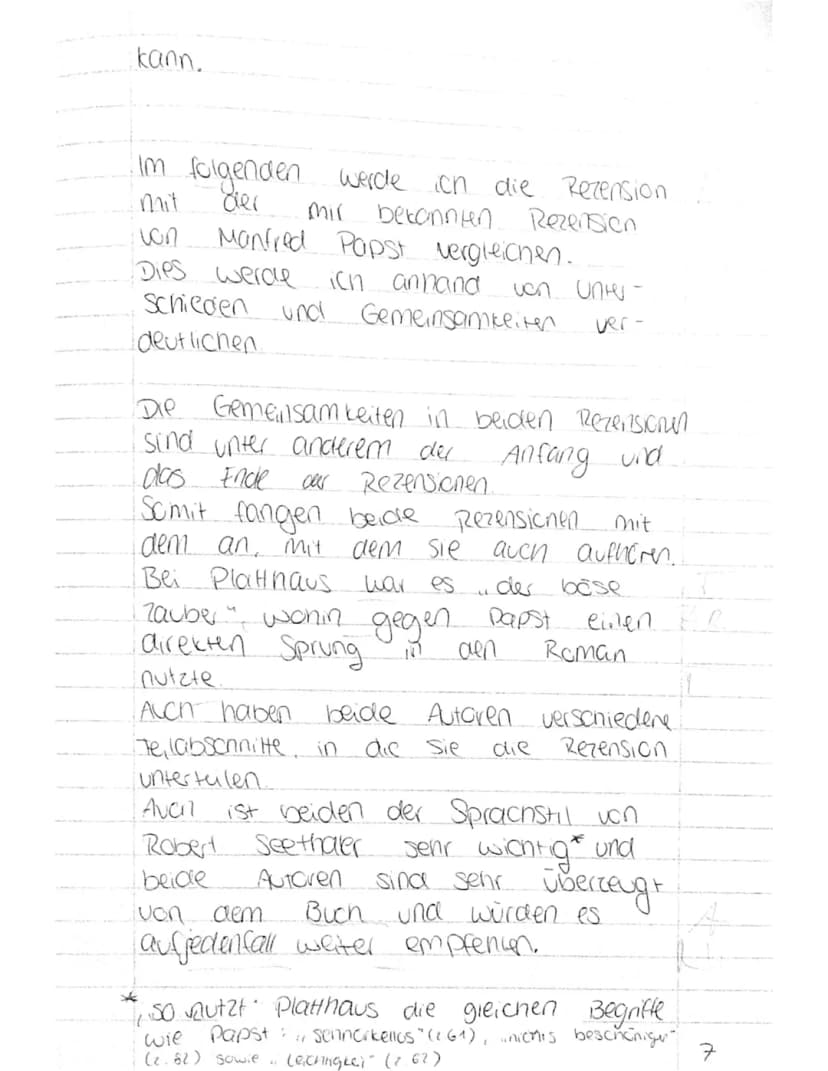 kann.
Im folgenden werde ich die Rezension
mit der mir bekannten Rezension
von Manfred Papst vergleichen.
Dies werde ich anhand von Unter-
schieden und Gemeinsamkeiten ver-
deutlichen.
Die Gemeinsamkeiten in beiden Rezensionen
sind unter anderem der Anfang und
das Ende der Rezensionen.
Somit fangen beide Rezensionen mit
dem an, mit dem sie auch aufhören.
Bei Platthaus war es „der böse
Zauber", wohin gegen Papst einen
direkten Sprung in den Roman
nutzte.
Auch haben beide Autoren verschiedene
Teilabschnitte, in die sie die Rezension
unterteilen.
Auch ist beiden der Sprachstil von
Robert Seethaler sehr wichtig* und
beide Autoren sind sehr überzeugt
von dem Buch und würden es
aufjedenfall weiter empfehlen.
*, so nutzt Platthaus die gleichen Begriffe
wie Papst: „schnörkellos" (z 61), „nichts
(z. 82) sowie „Leichtigkei" (z. 62)
7